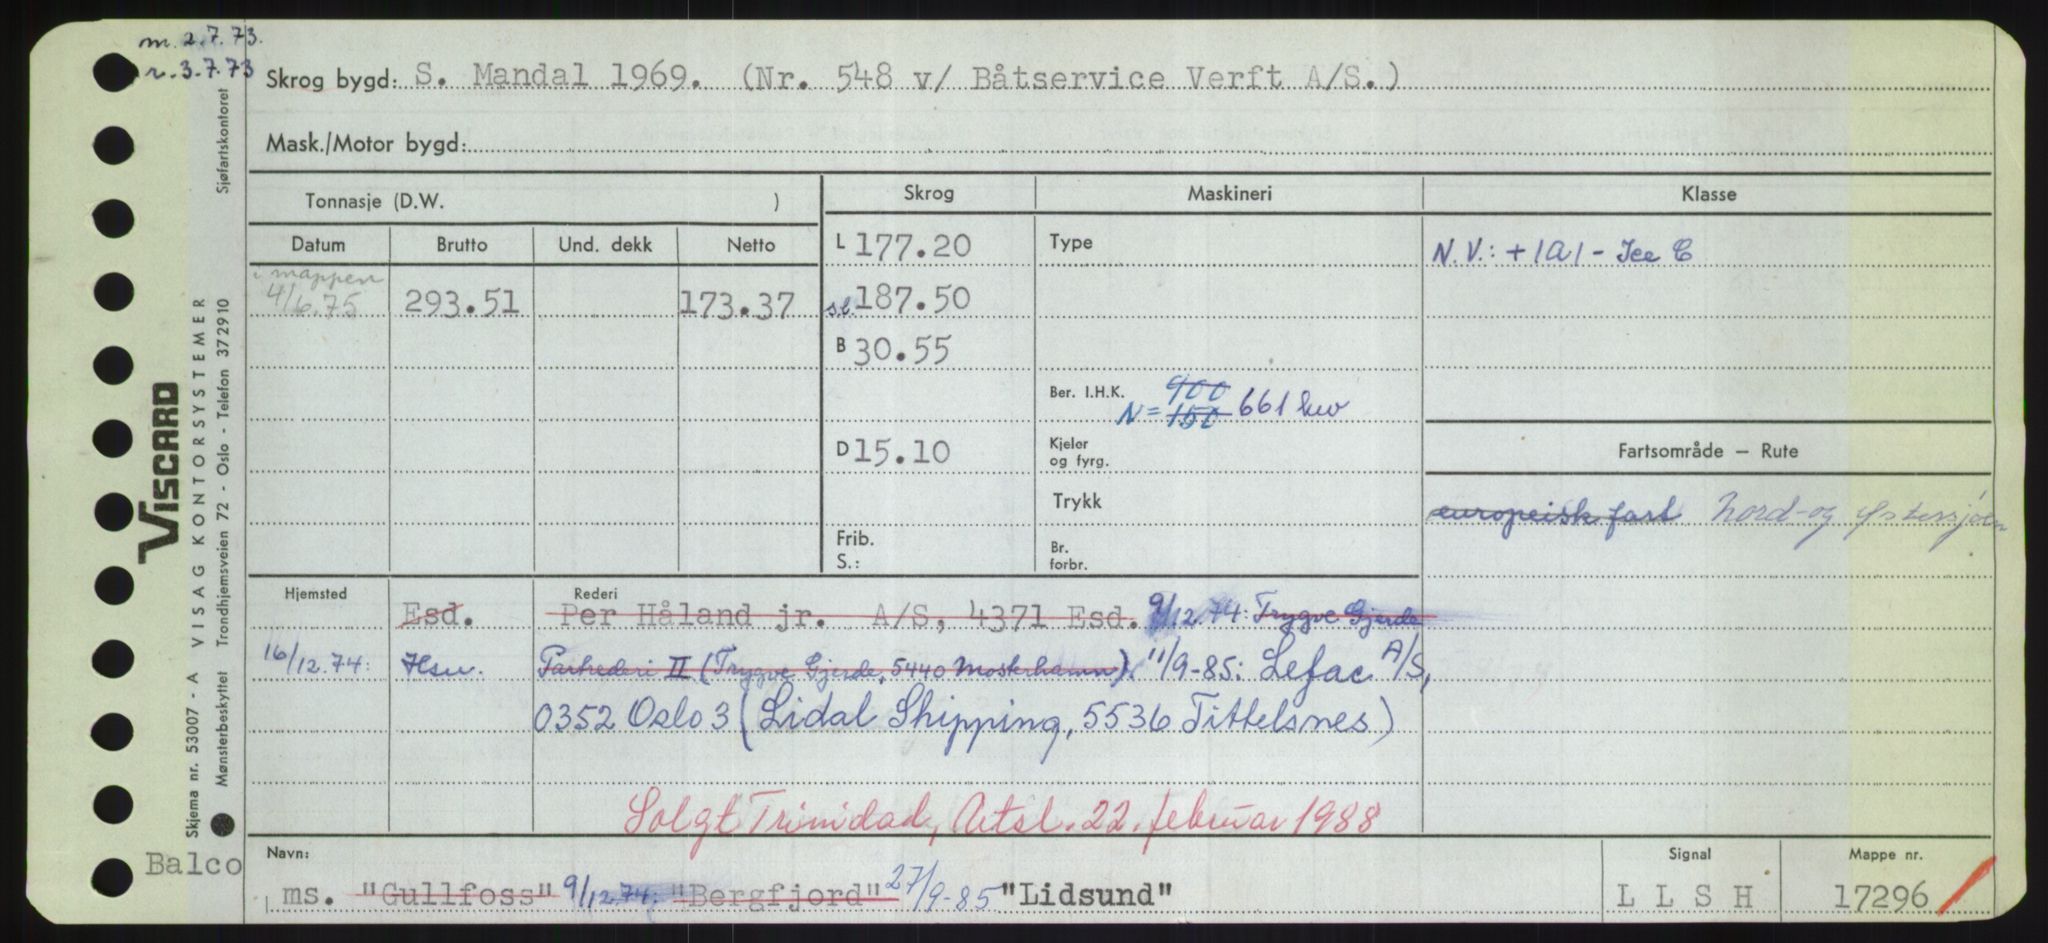 m. 2.7.73.
r. 3.7.73
Skrog bygd: S. Mandal 1969. (Nr. 548 v/ Båtservice Verft A/S.)
Mask./Motor bygd:
Tonnasje (D.W. )
Skrog
Maskineri
Klasse
Datum Brutto Und. dekk Netto
L 177.20
Type
N.V.: +1A1 - Ice C
i mappen
4/6.75 293.51 173.37
s.l. 187.50
B 30.55
Ber. I.H.K. 900
N= 150 661 kw
D 15.10
Kjeler
og fyrg.
Fartsområde – Rute
Trykk
europeisk fart Nord- og Østersjøen
Frib.
S.:
Br.
forbr.
Hjemsted
Rederi
Esd. Per Håland jr. A/S, 4371 Esd. 9/12.74: Trygve Gjerde
16/12.74: Hsu. Partrederi II (Trygve Gjerde, 5440 Mosterhamn). 11/9-85: Lefac A/S,
0352 Oslo 3 (Lidal Shipping, 5536 Tittelsnes)
Solgt Trinidad, Utsl. 22. februar 1988
Balco
Navn:
Signal
Mappe nr.
ms. "Gullfoss" 9/12.74: "Bergfjord" 27/9-85 "Lidsund"
L L S H
17296
VISCARD
Skjema nr. 53007 - A VISAG KONTORSYSTEMER
Mønsterbeskyttet Trondhjemsveien 72 - Oslo - Telefon 372910 Sjøfartskontoret